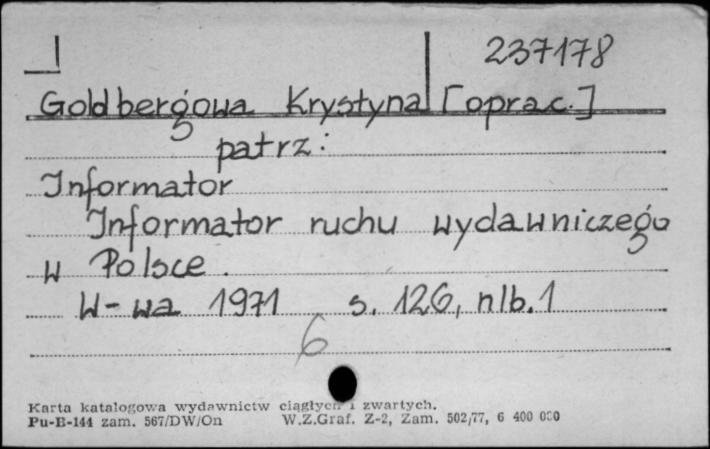 237178
Goldbergowa Krystyna [oprac.]
patrz:
Informator
Informator ruchu wydawniczego
w Polsce.
W-wa 1971 s. 126, nlb. 1
6
Karta katalogowa wydawnictw ciągłych i zwartych.
Pu-B-144 zam. 567/DW/On W.Z.Graf. Z-2, Zam. 502/77, 6 400 000